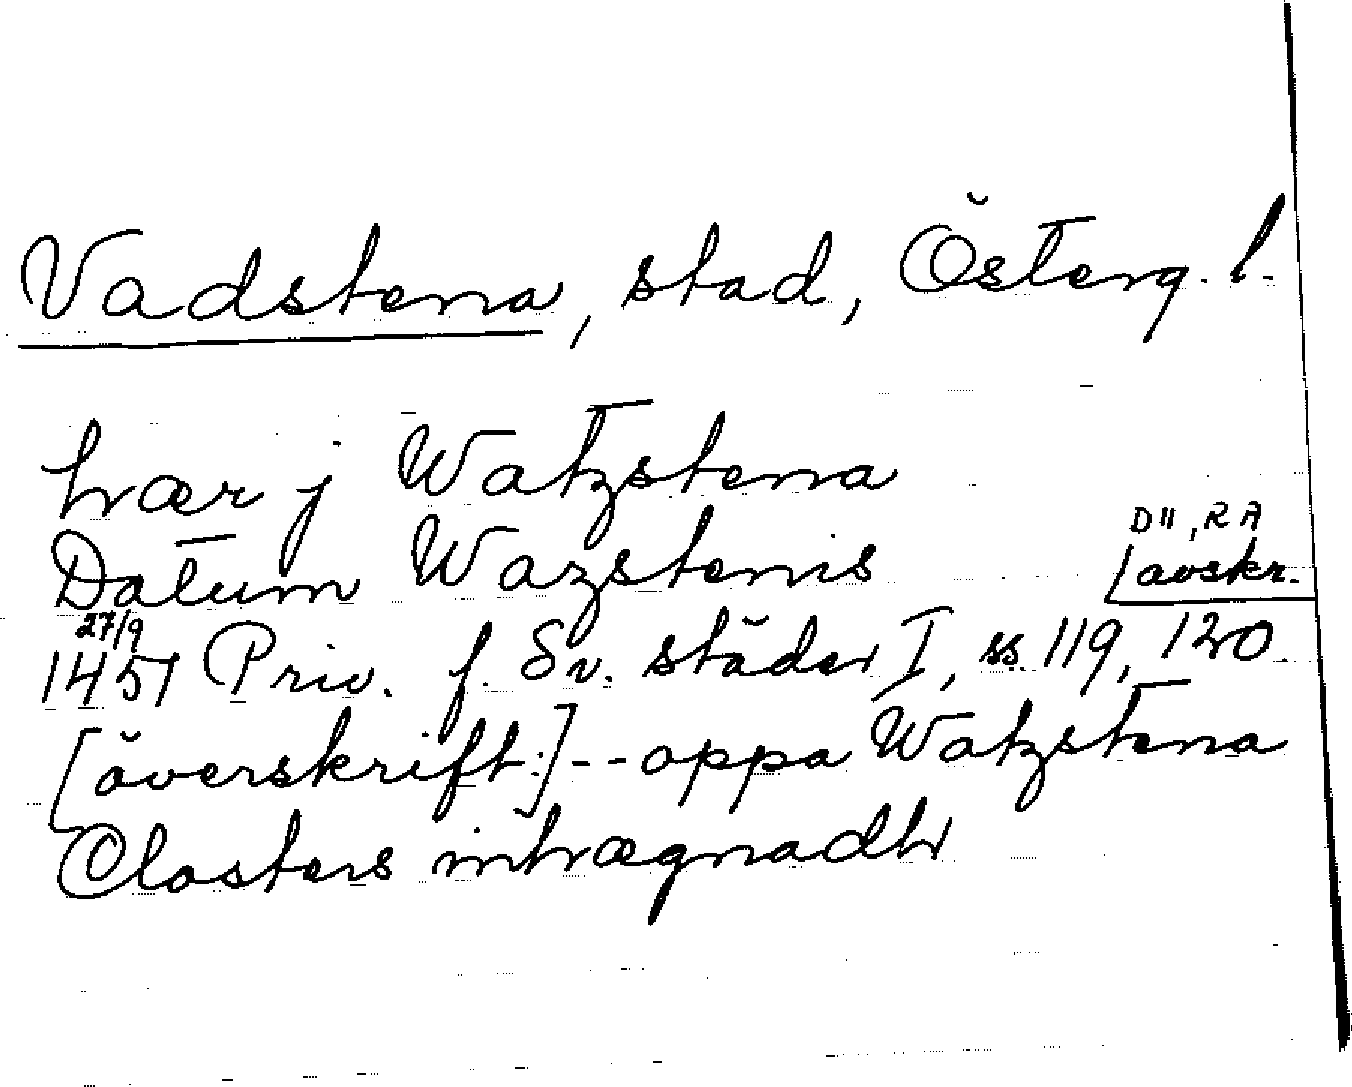 Vadstena, stad, Österg. l.
hær j Watzstena
Datum Wazstenis
D 11, RA
avskr.
27/9
1451 Priv. f. Sv. städer I, ss. 119, 120
[överskift:] -- oppa Watzstena
Closters inhægnadh